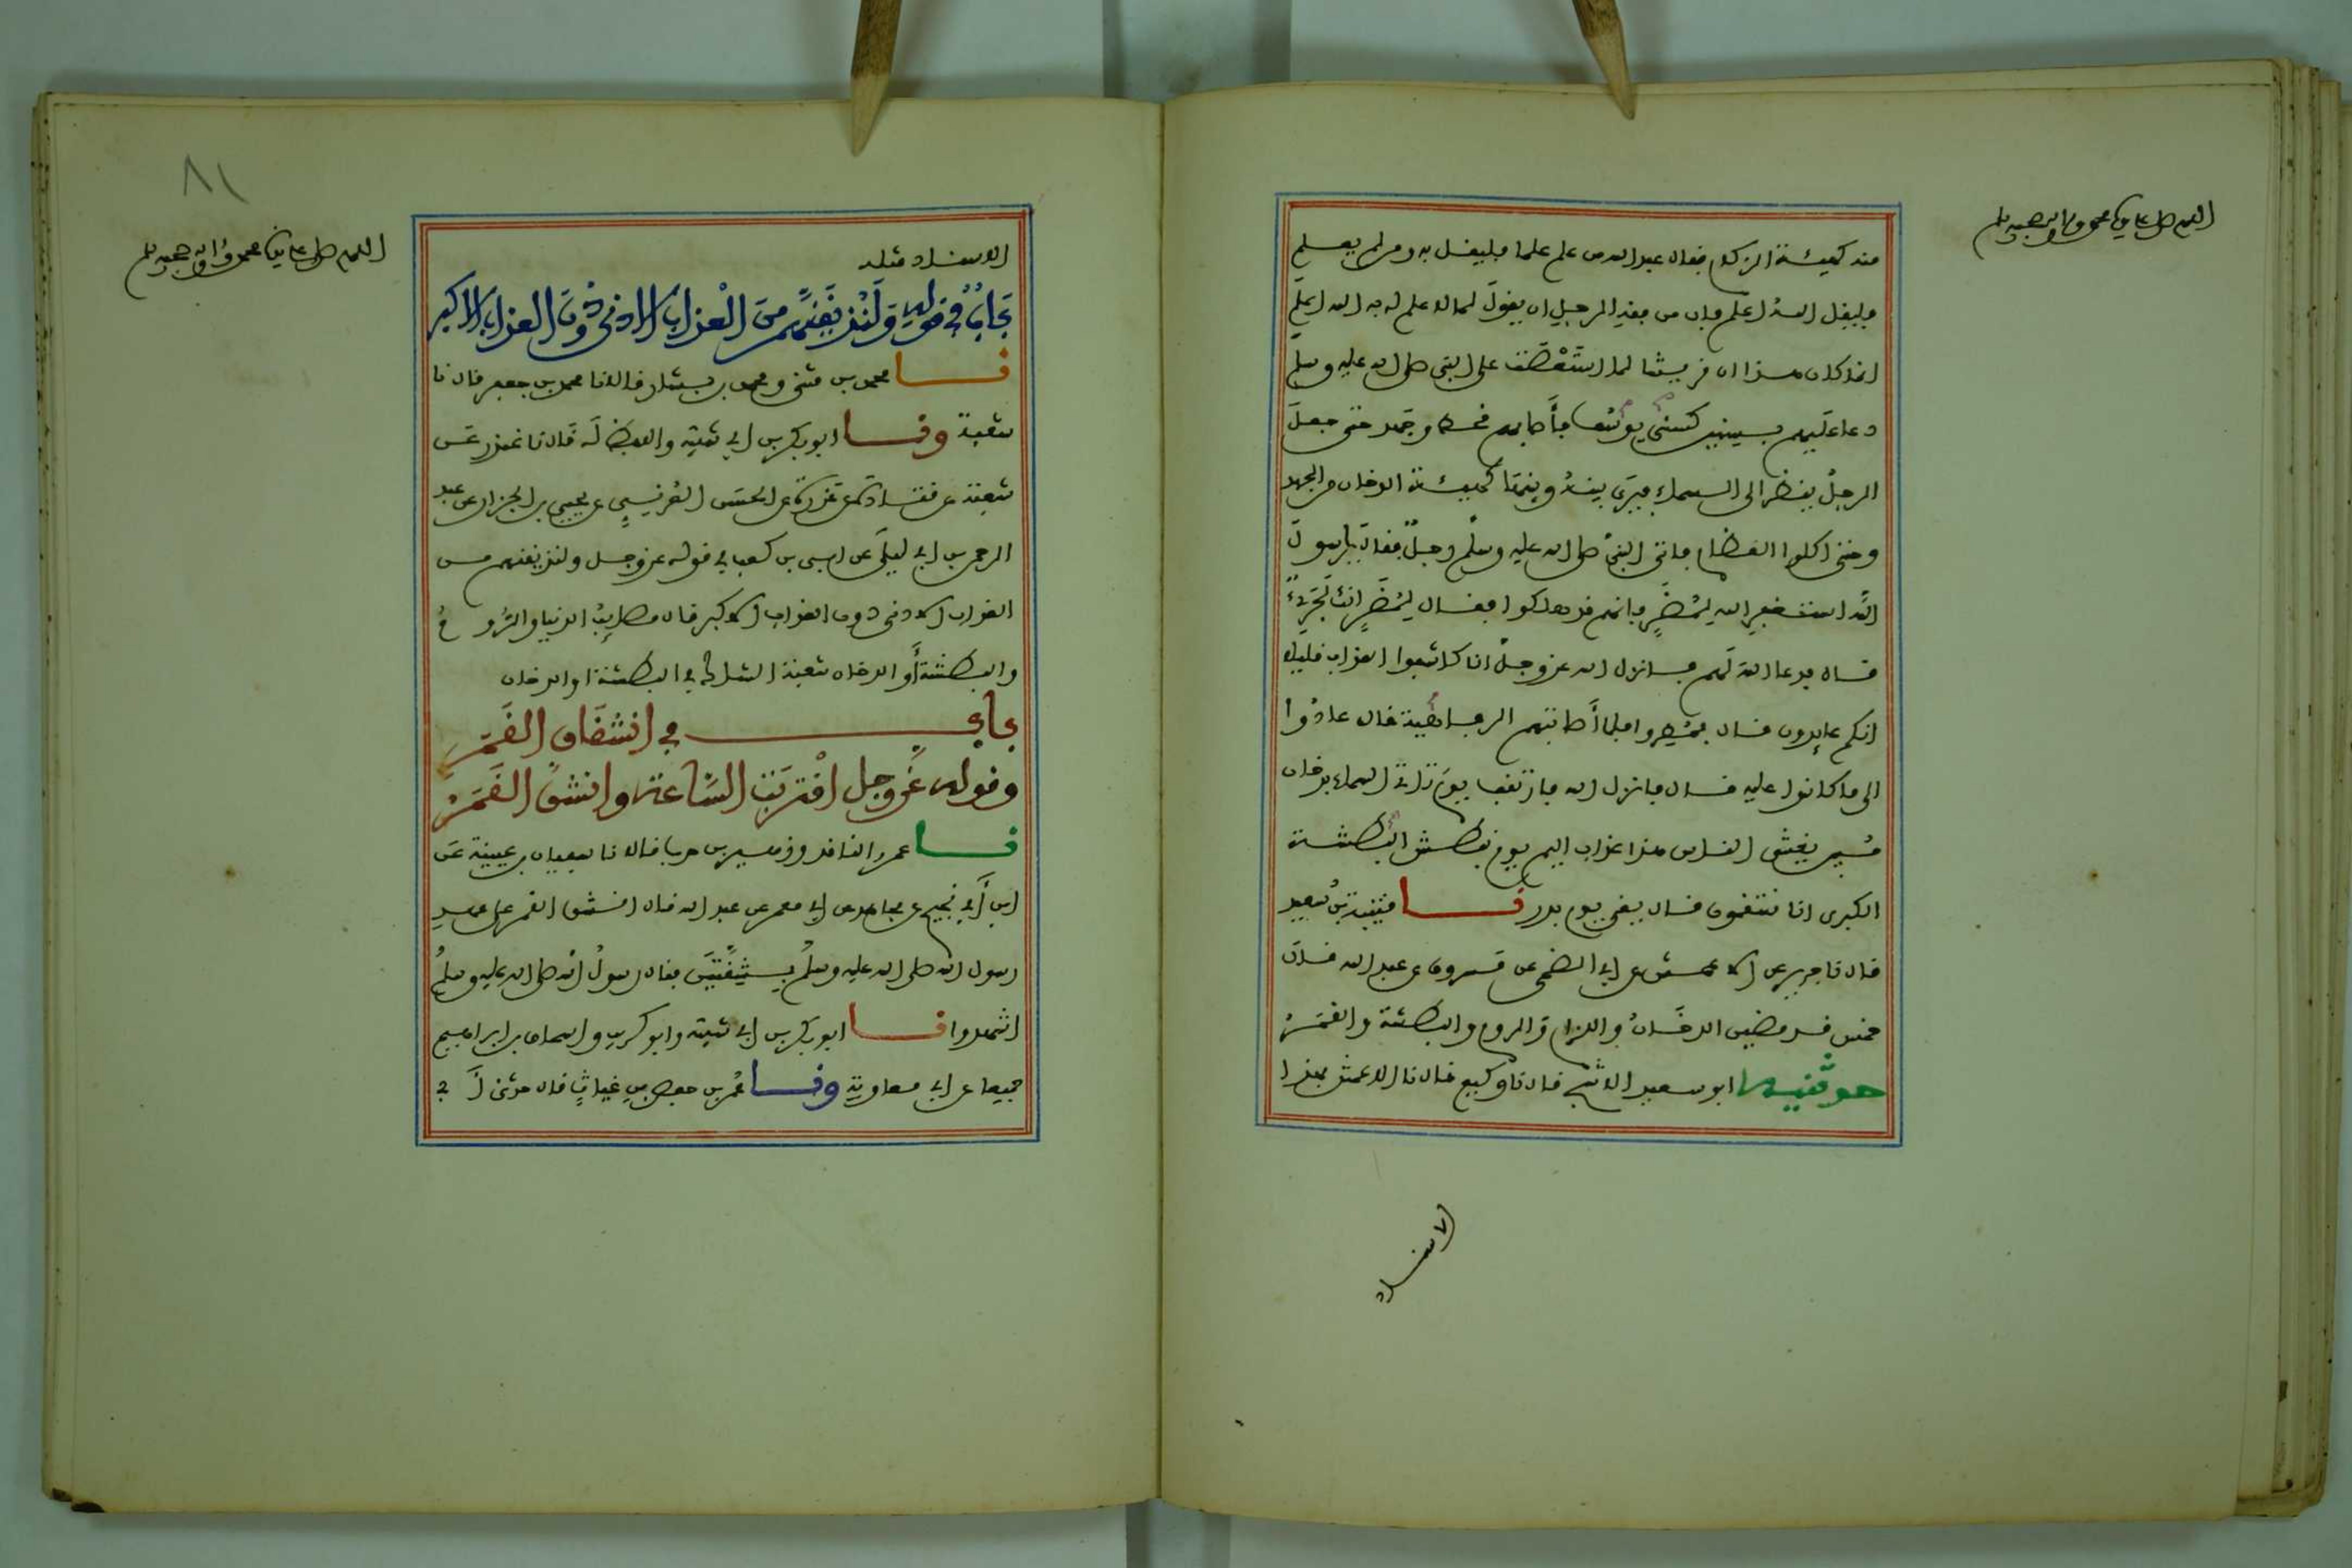 اللهم صل على نبينا محمد وآله وصحبه وسلم
منه كهيئة الزكام فقال عبد الله من علم علما فليقل به ومن لم يعلم
فليقل الله أعلم فإن من فقه الرجل ان يقول لما لا علم له به الله اعلم
انما كان هذا ان قريشا لما استعصت على النبي صلى الله عليه وسلم
دعا عليهم بسنين كسني يوسف فأصابهم قحط وجهد حتى جعل
الرجل ينظر الى السماء فيرى بينه وبينها كهيئة الدخان من الجهد
وحتى اكلوا العظام فاتى النبي صلى الله عليه وسلم رجل فقال يا رسول
الله استغفر الله لمضر فإنهم قد هلكوا فقال لمضر إنك لجريء
قال فدعا الله لهم فانزل الله عز وجل انا كاشفوا العذاب قليلا
انكم عايدون قال فمطروا فلما أصابتهم الرفاهية قال عادوا
الى ما كانوا عليه قال فانزل الله فارتقب يوم تاتي السماء بدخان
مبين يغشى الناس هذا عذاب اليم يوم نبطش البطشة
الكبرى انا منتقمون قال يعني يوم بدر نا قتيبة بن سعيد
قال نا جرير عن الاعمش عن ابي الضحى عن مسروق عن عبد الله قال
خمس قد مضين الدخان واللزام والروم والبطشة والقمر
حدثنيه ابو سعيد الاشج قال نا وكيع قال نا الاعمش بهذا
الاسناد
٨١
اللهم صل على نبينا محمد وآله وصحبه وسلم
الاسناد مثله
باب في قوله ولنذيقنهم من العذاب الادنى دون العذاب الاكبر
نا محمد بن مثنى ومحمد بن بشار قالا نا محمد بن جعفر قال نا
شعبة ونا ابو بكر بن ابي شيبة واللفظ له قال نا غندر عن
شعبة عن قتادة عن عزرة عن الحسن العرني عن يحيى بن الجزار عن عبد
الرحمن بن ابي ليلى عن ابي بن كعب في قوله عز وجل ولنذيقنهم من
العذاب الادنى دون العذاب الاكبر قال مصايب الدنيا والروم
والبطشة أو الدخان شعبة الشاك في البطشة او الدخان
باب في انشقاق القمر
وقوله عز وجل اقتربت الساعة وانشق القمر
نا عمرو الناقد وزهير بن حرب قالا نا سفيان بن عيينة عن
ابن أبي نجيح عن مجاهد عن ابي معمر عن عبد الله قال انشق القمر على عهد
رسول الله صلى الله عليه وسلم بشقتين فقال رسول الله صلى الله عليه وسلم
اشهدوا نا ابو بكر بن ابي شيبة وابو كريب واسحاق بن ابراهيم
جميعا عن ابي معاوية ونا عمر بن حفص بن غياث قال حدثني أبي